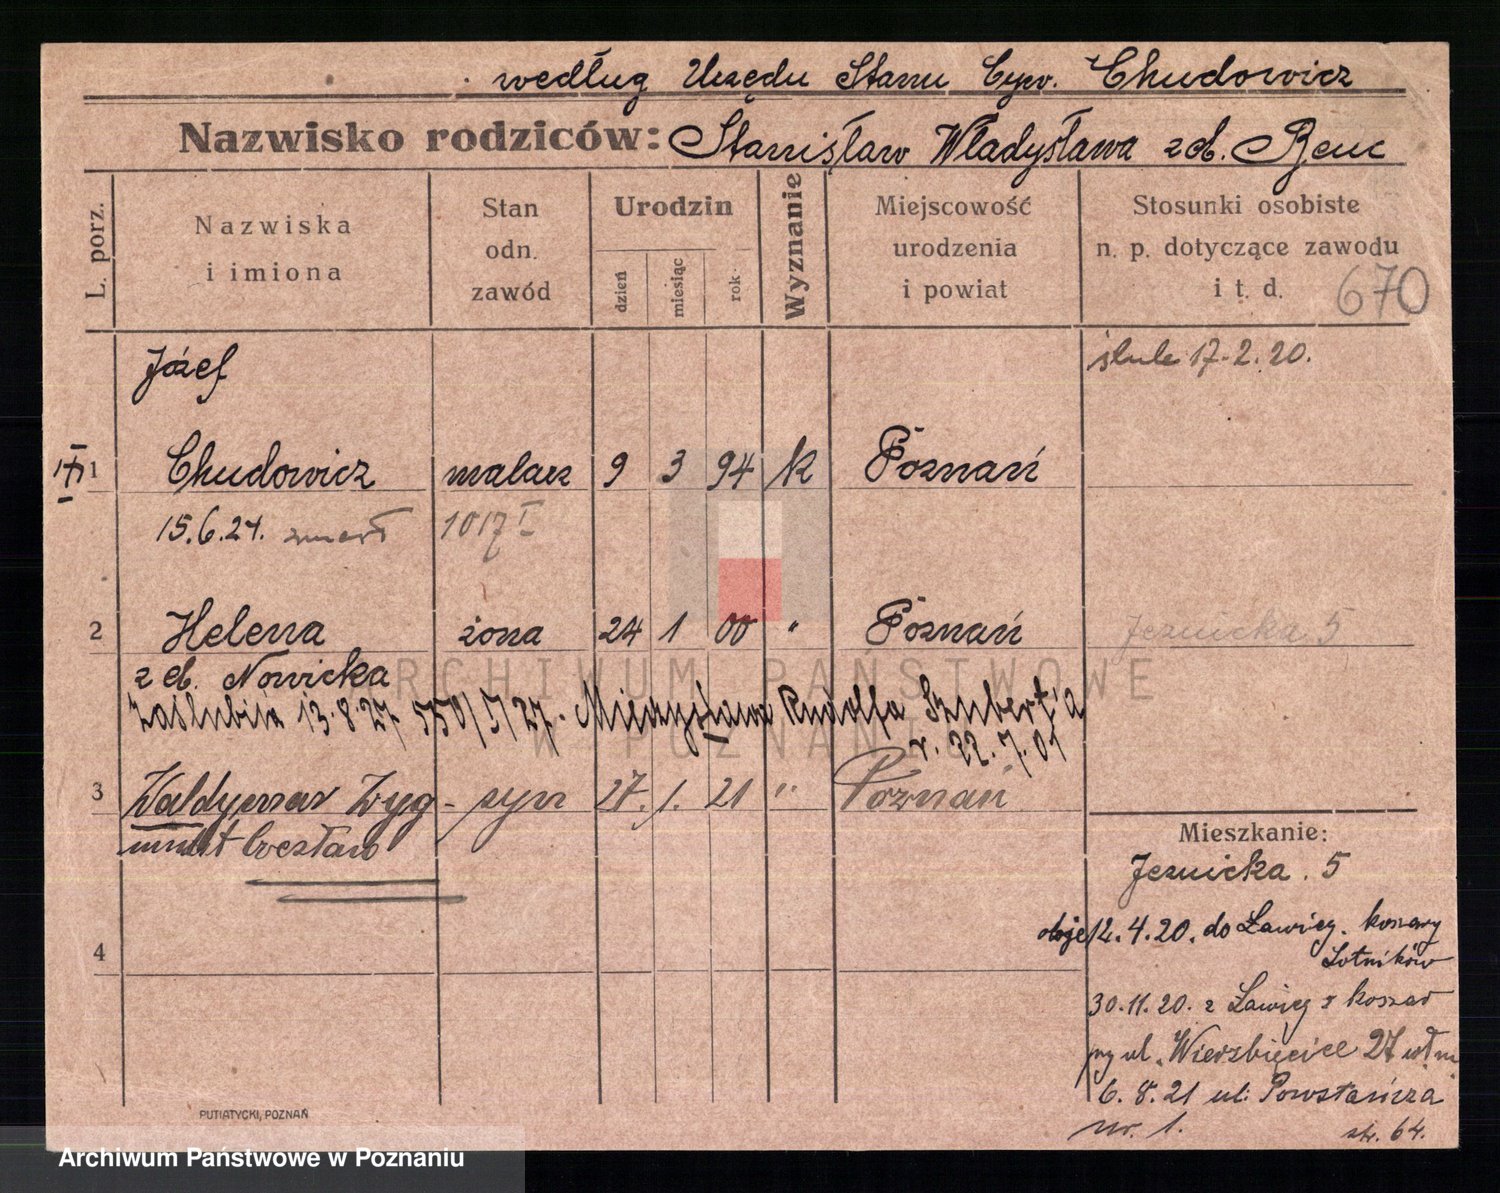 według Urzędu Stanu Cyw. Chudowicz
Nazwisko rodziców: Stanisław Władysława zd. Benc
L. porz.
Nazwiska i imiona
Stan odn. zawód
Urodzin
dzień
miesiąc
rok
Wyznanie
Miejscowość urodzenia i powiat
Stosunki osobiste n. p. dotyczące zawodu i t. d.
670
Józef
ślub 17.2.20.
1 Chudowicz malarz 9 3 94 k Poznań
15.6.24. zmarł 1017 I
2 Helena żona 24 1 00 " Poznań
Jezuicka 5
zd. Nowicka
Zaślubiła 13.8.27 550/I/27. Mieczysława Rudolfa Szubert'a
r. 22.7.01
3 Waldymar Zyg- syn 27. 1. 21 " Poznań
munt Czesław
Mieszkanie:
Jezuicka. 5
oboje 12.4.20. do Ławicy. koszary
Lotników
30.11.20. z Ławicy z koszar
ul. Wierzbięcice 27
6.8.21 ul: Powstańcza
nr. 1.
str. 64.
4
PUTIATYCKI, POZNAŃ
ARCHIWUM PAŃSTWOWE
W POZNANIU
Archiwum Państwowe w Poznaniu